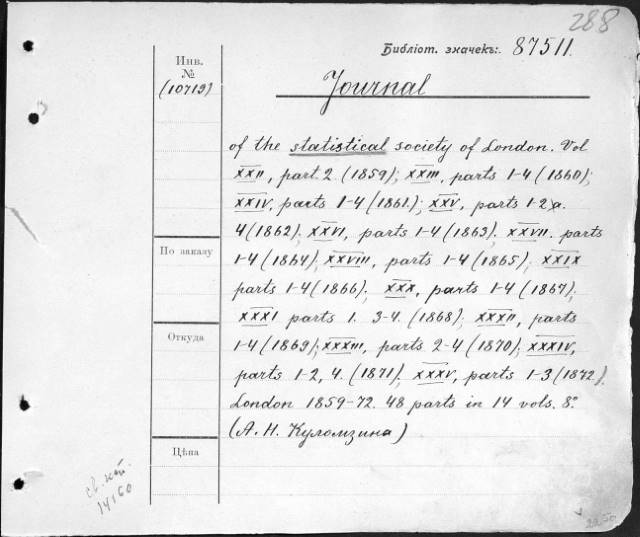 288
Библіот. значекъ: 87511.
Инв.
№
(10719)
Journal
of the statistical society of London. Vol
XXII, part 2 (1859); XXIII, parts 1-4 (1860);
XXIV, parts 1-4 (1861.); XXV, parts 1-2 a.
4 (1862); XXVI, parts 1-4 (1863); XXVII. parts
1-4 (1864); XXVIII, parts 1-4 (1865); XXIX
parts 1-4 (1866); XXX, parts 1-4 (1867);
XXXI parts 1. 3-4. (1868); XXXII, parts
1-4 (1869); XXXIII, parts 2-4 (1870); XXXIV,
parts 1-2, 4. (1871). XXXV, parts 1-3 (1872).
London 1859-72. 48 parts in 14 vols. 8°.
(А. Н. Куломзина)
По заказу
Откуда
Цѣна
14160